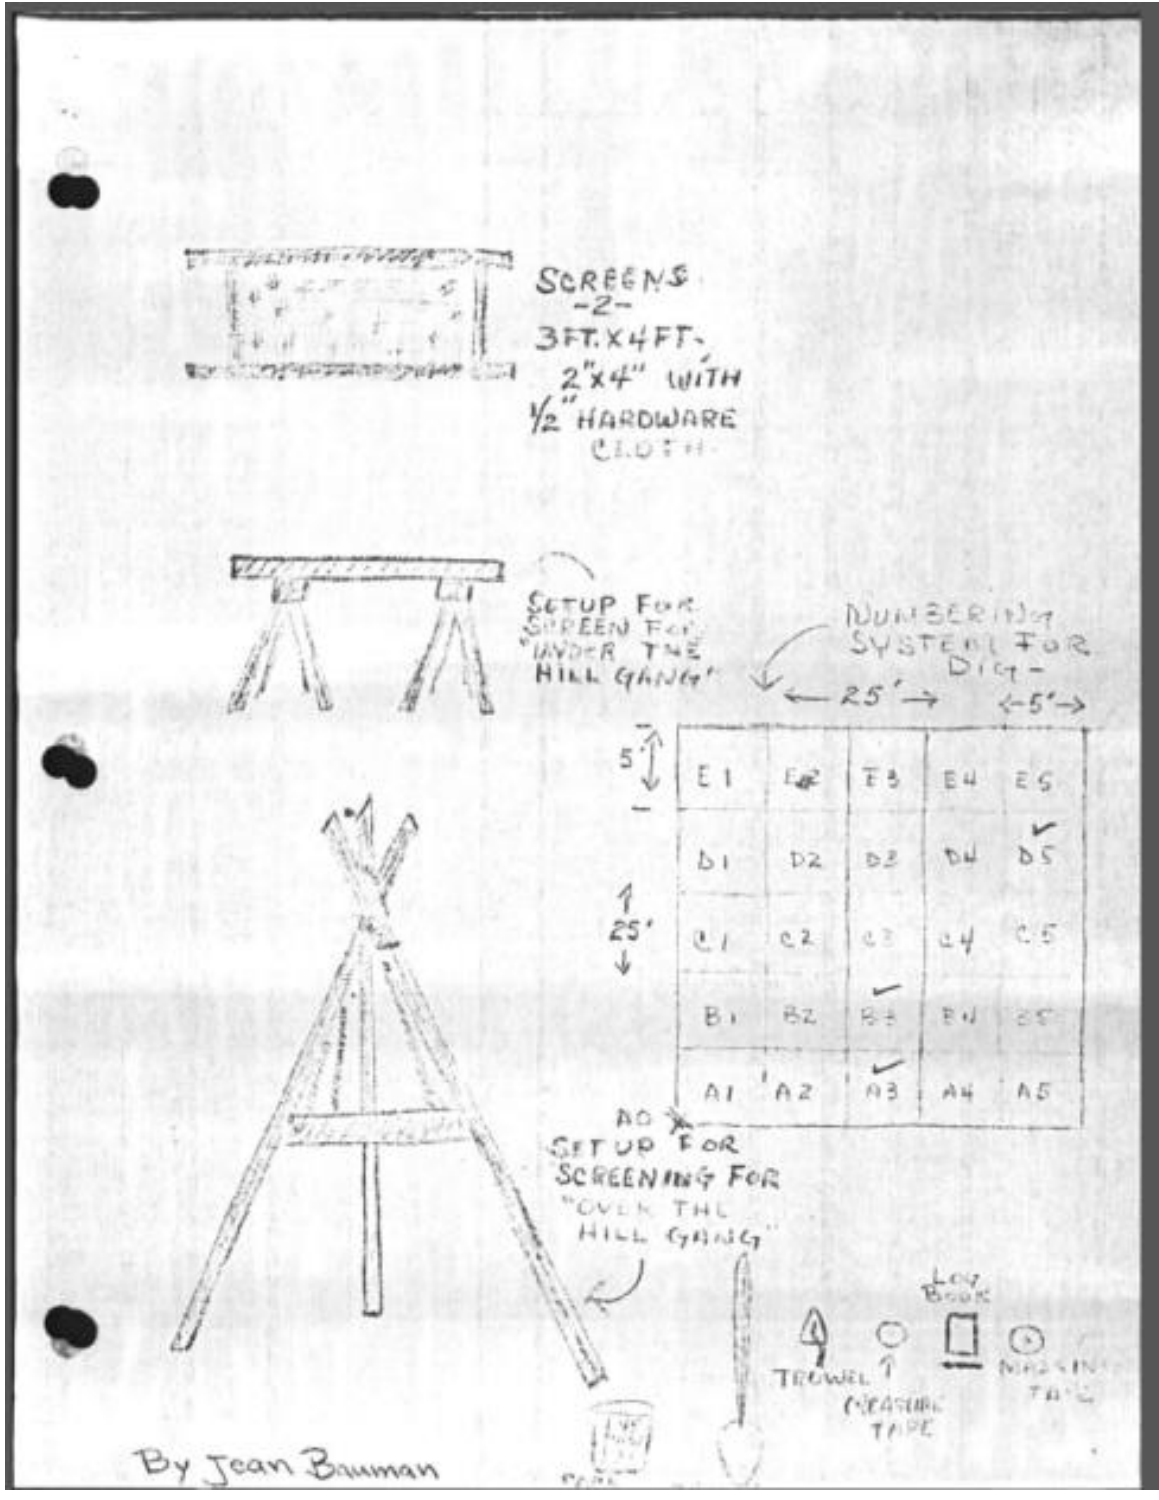 SCREENS
-2-
3FT. X 4FT.
2"X4" WITH
1/2" HARDWARE
CLOTH.
SETUP FOR
SCREEN FOR
"UNDER THE
HILL GANG"
NUMBERING
SYSTEM FOR
DIG-
25'
5'
5'
E1 E2 E3 E4 E5
D1 D2 D3 D4 D5
25'
C1 C2 C3 C4 C5
B1 B2 B3 B4 B5
A1 A2 A3 A4 A5
AO X
SET UP FOR
SCREENING FOR
"OVER THE
HILL GANG"
LOG
BOOK
TROWEL
MEASURE
TAPE
By Jean Bauman